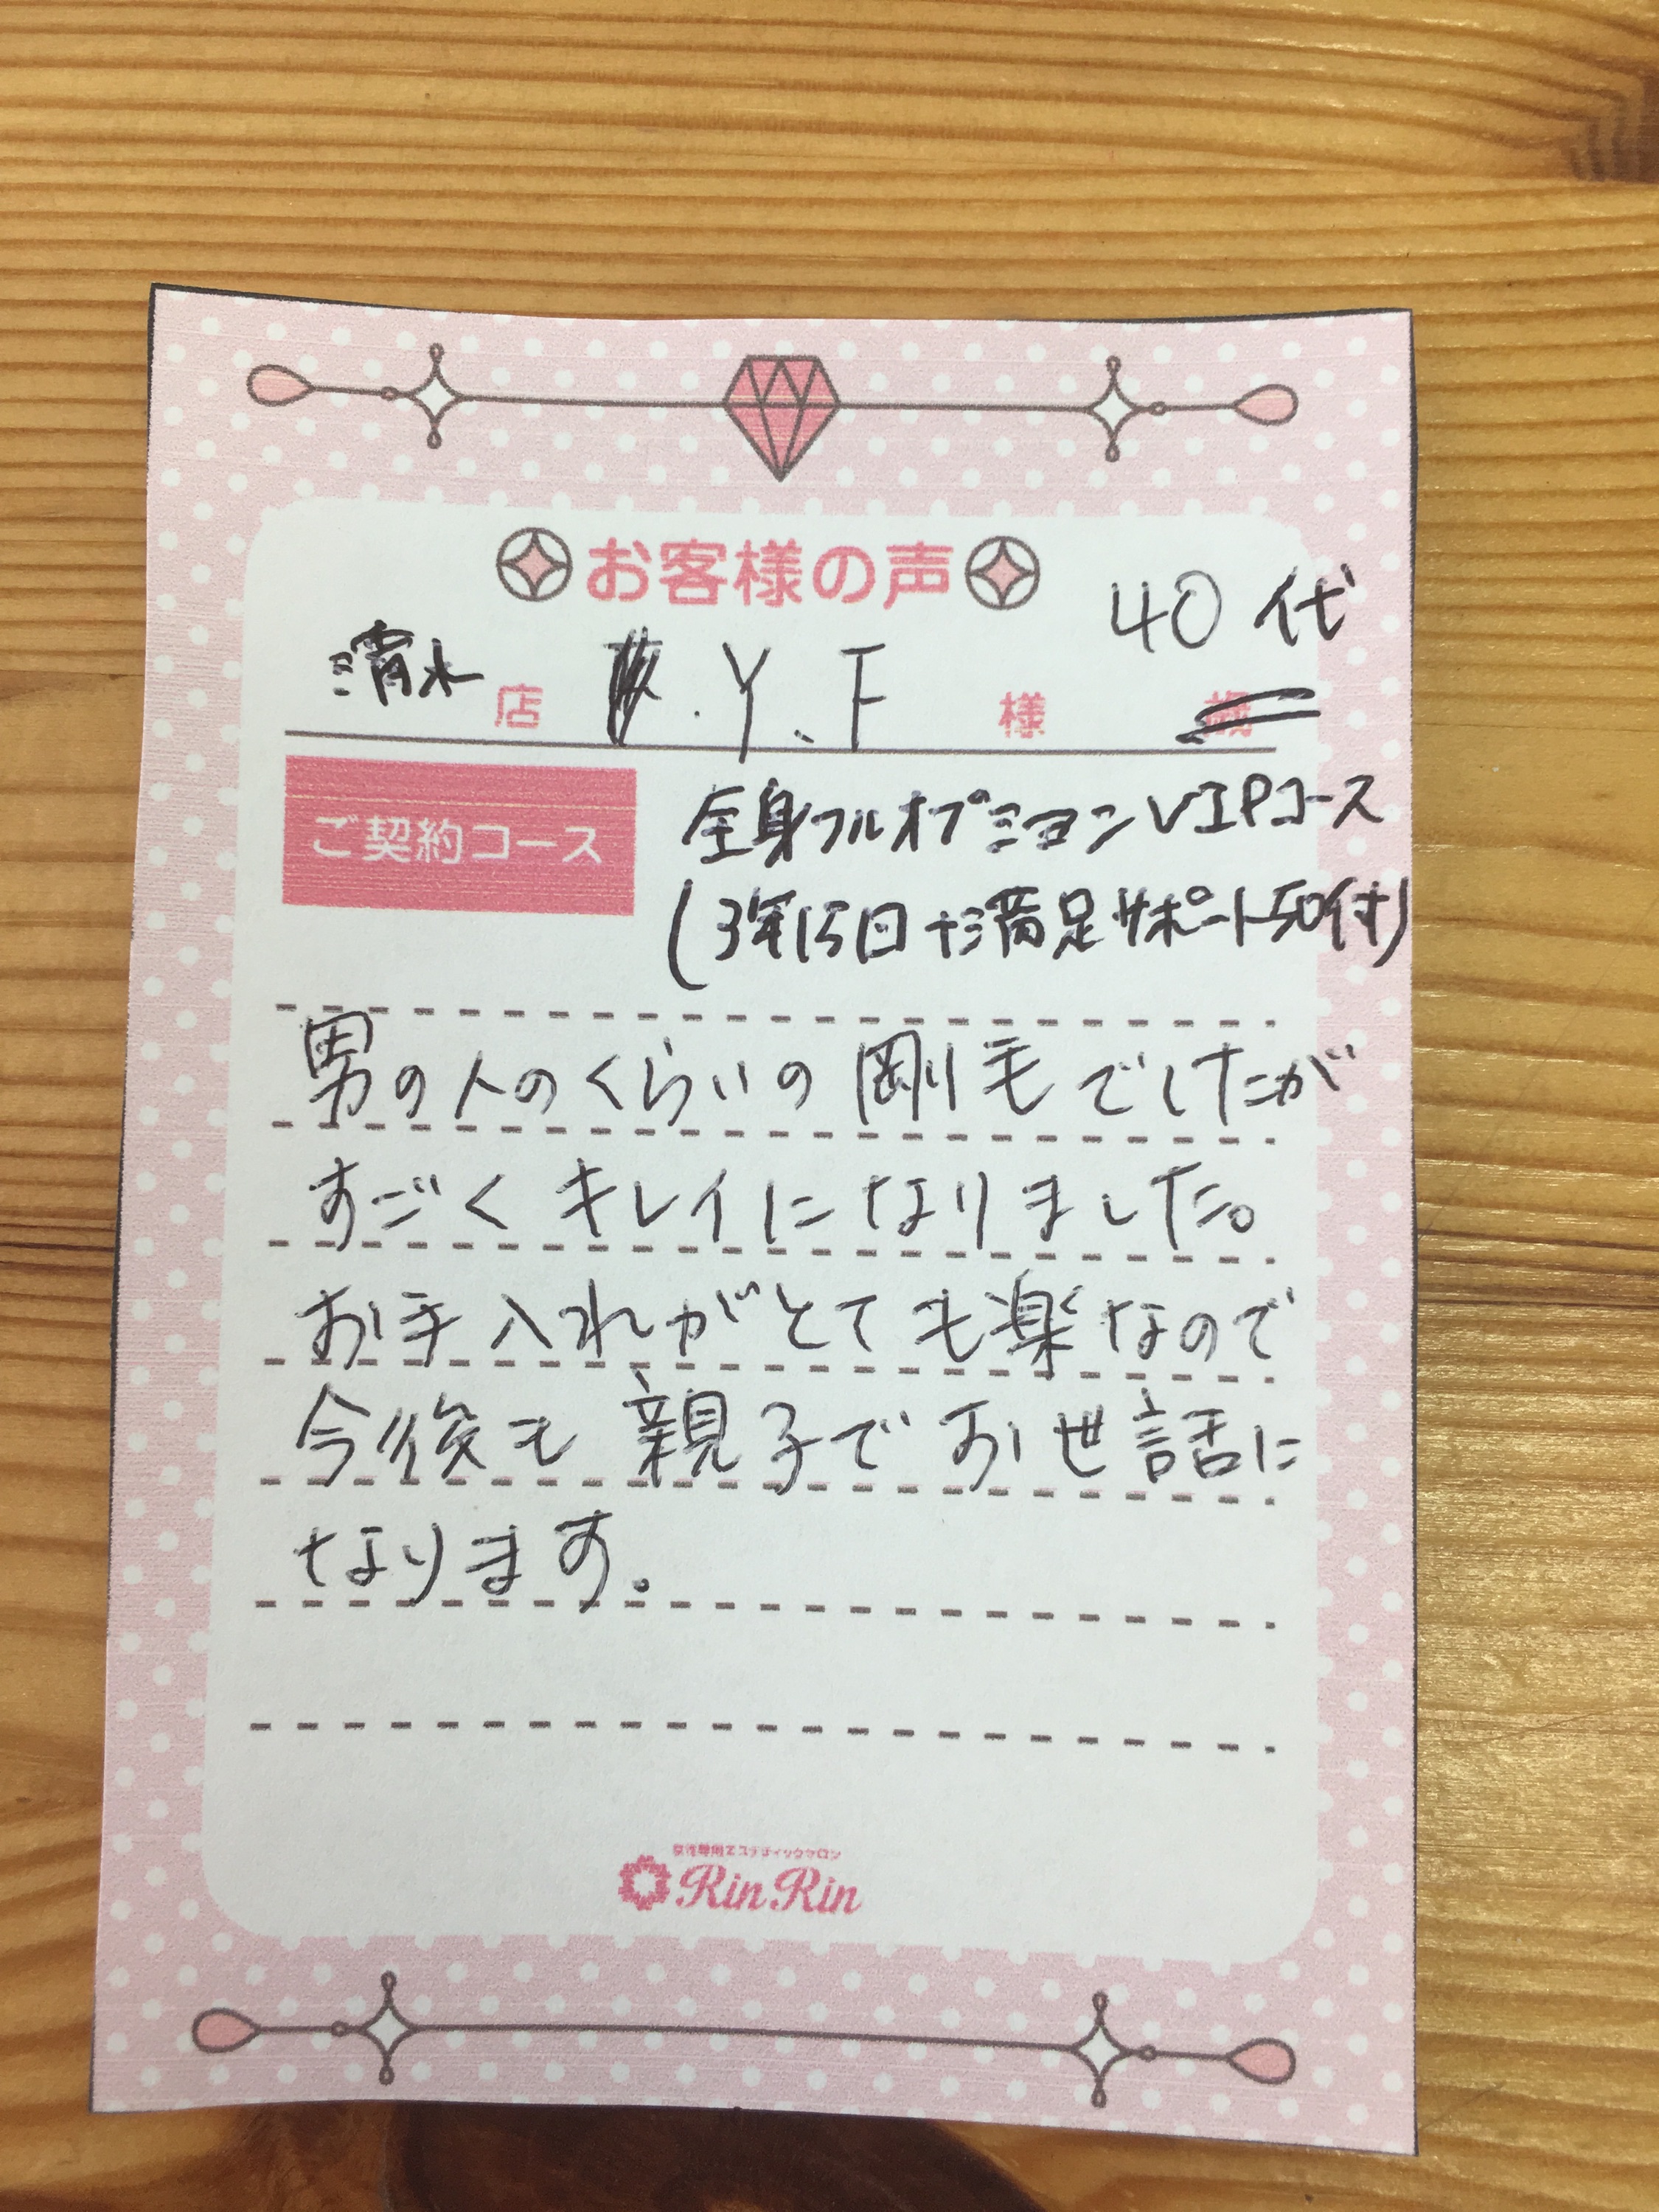 お客様の声
40代
清水店 .Y.F様
ご契約コース 全身フルオプションVIPコース
(3年15回+満足サポート50付)
男の人のくらいの剛毛でしたが
すごくキレイになりました。
お手入れがとても楽なので
今後も親子でお世話に
なります。
女性専用エステティックサロン
RinRin